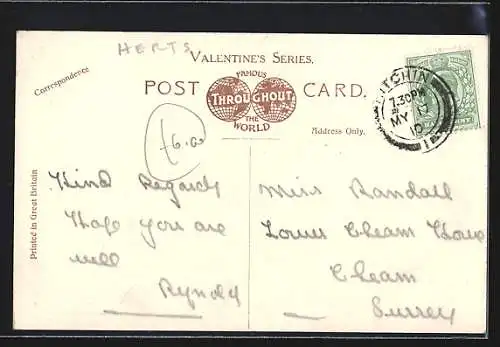 HERTS
VALENTINE'S SERIES.
FAMOUS
POST THROUGHOUT CARD.
THE
WORLD
Correspondence
Address Only.
Printed in Great Britain
HITCHIN
7.30 PM
MY
10
£6.00
Kind Regards
Hope you are
well
Miss Randall
Lower Cheam House
Cheam
Surrey